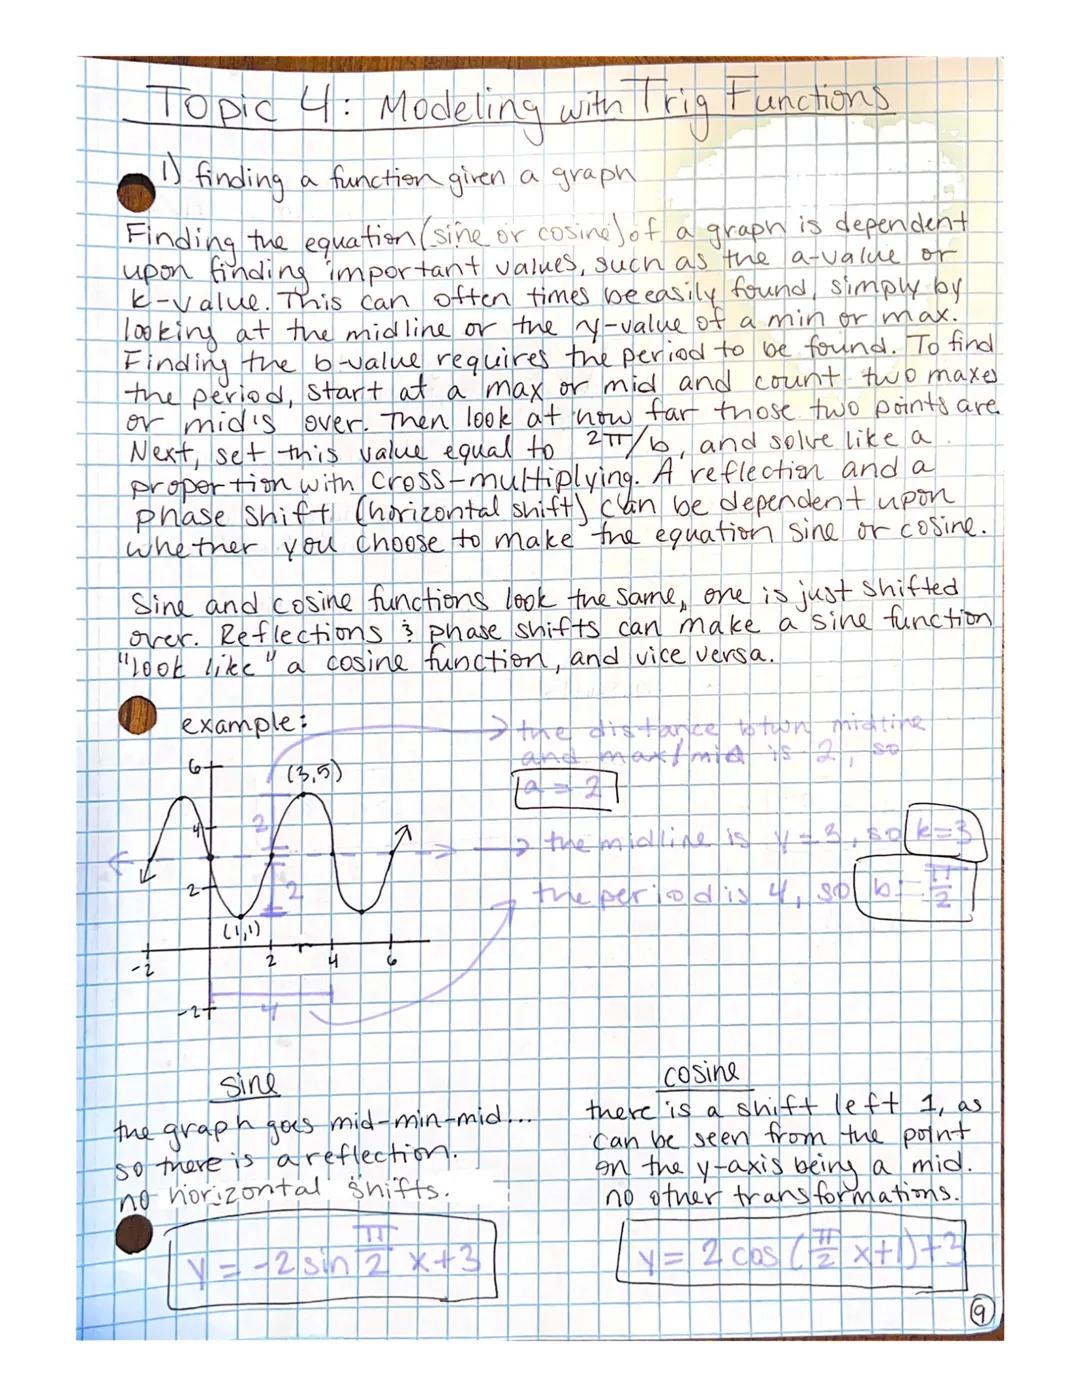 Topic 4: Modeling with Trig Functions
1) finding a function given a graph
Finding the equation (sine or cosine) of a graph is dependent
upon finding important values, such as the a-value or
k-value. This can often times be easily found, simply by
looking at the midline or the y-value of a min or max.
Finding the b-value requires the period to be found. To find
the period, start at a max or mid and count two maxes
or mid's over. Then look at how far those two points are.
Next, set this value equal to 2π/b, and solve like a
proportion with cross-multiplying. A reflection and a
phase shift (horizontal shift) can be dependent upon
whether you choose to make the equation sine or cosine.
Sine and cosine functions look the same, one is just shifted
over. Reflections & phase shifts can make a sine function
"look like" a cosine function, and vice versa.
example:
the distance btwn midline
and max/mid is 2, so
a = 2
the midline is y=3, so k=3
the period is 4, so b = π/2
6
(3,5)
4
2
2
2
(1,1)
-2
2
4
6
-2
4
sine
the graph goes mid-min-mid...
so there is a reflection.
no horizontal shifts.
y = -2 sin π/2 x+3
cosine
there is a shift left 1, as
can be seen from the point
on the y-axis being a mid.
no other transformations.
y = 2 cos (π/2 x+1)+3
9